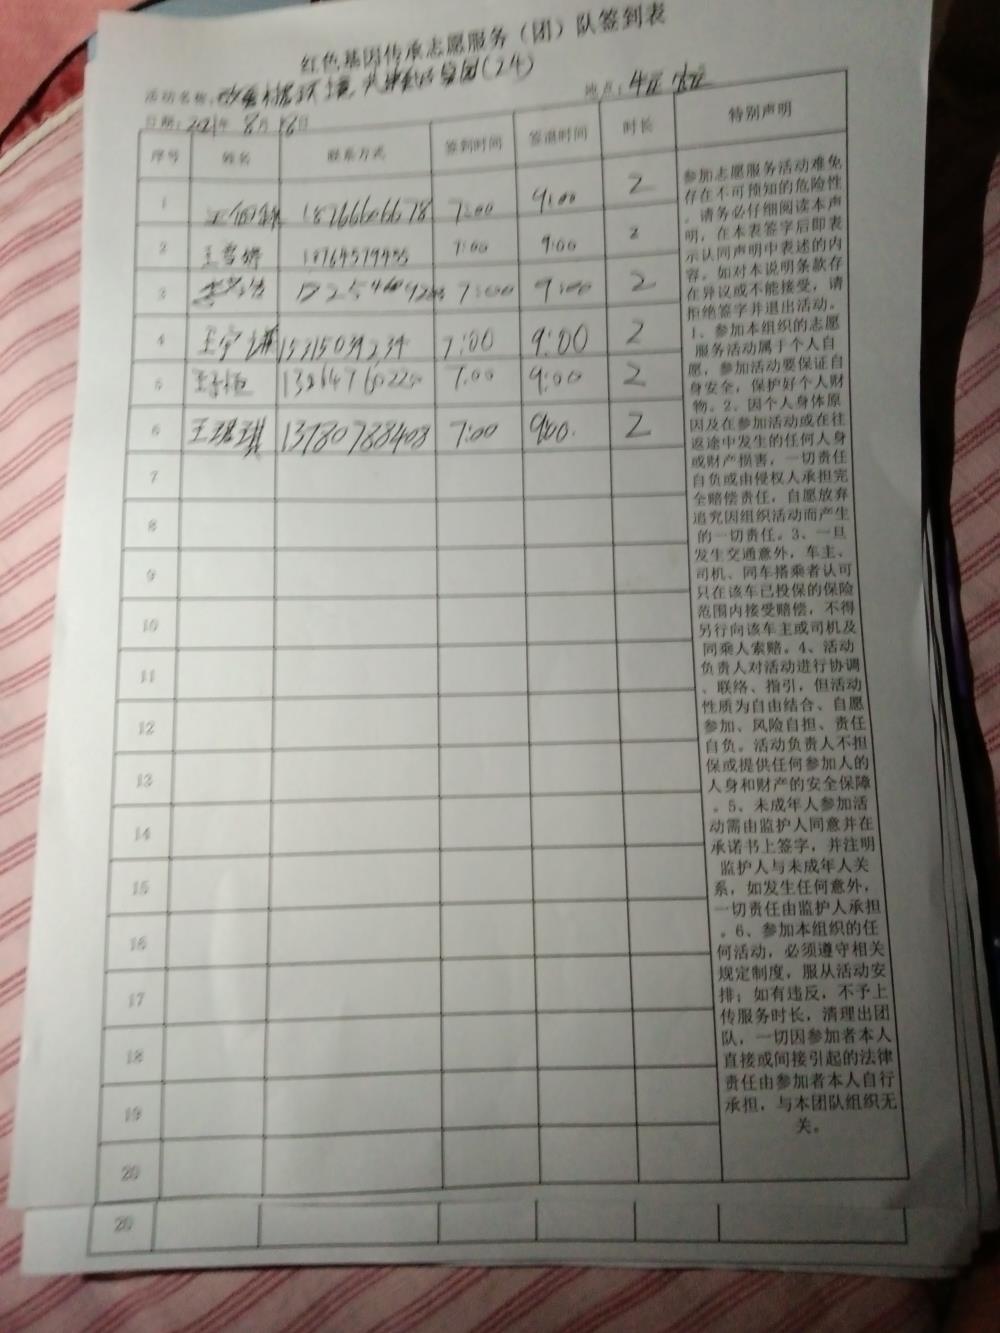 红色基因传承志愿服务（团）队签到表
活动名称：改善人居环境，共建（24）
地点：
日期：2021年8月18日
序号 姓名 联系方式 签到时间 签退时间 时长 特别声明
1 18766606678 7:00 9:00 2
2 王雪婷 18764579455 7:00 9:00 2
3 7:00 9:00 2
4 王宁 7:00 9:00 2
5 7:00 9:00 2
6 王珺琪 13780788408 7:00 9:00. 2
7
8
9
10
11
12
13
14
15
16
17
18
19
20
参加志愿服务活动难免
存在不可预知的危险性
，请务必仔细阅读本声
明，在本表签字后即表
示认同声明中表述的内
容。如对本说明条款存
在异议或不能接受，请
拒绝签字并退出活动。
1、参加本组织的志愿
服务活动属于个人自
愿，参加活动要保证自
身安全，保护好个人财
物。2、因个人身体原
因及在参加活动或在往
返途中发生的任何人身
或财产损害，一切责任
自负或由侵权人承担完
全赔偿责任，自愿放弃
追究因组织活动而产生
的一切责任。3、一旦
发生交通意外，车主、
司机、同车搭乘者认可
只在该车已投保的保险
范围内接受赔偿，不得
另行向该车主或司机及
同乘人索赔。4、活动
负责人对活动进行协调
、联络、指引，但活动
性质为自由结合、自愿
参加、风险自担、责任
自负。活动负责人不担
保或提供任何参加人的
人身和财产的安全保障
。5、未成年人参加活
动需由监护人同意并在
承诺书上签字，并注明
监护人与未成年人关
系，如发生任何意外，
一切责任由监护人承担
。6、参加本组织的任
何活动，必须遵守相关
规定制度，服从活动安
排；如有违反，不予上
传服务时长，清理出团
队，一切因参加者本人
直接或间接引起的法律
责任由参加者本人自行
承担，与本团队组织无
关。
20